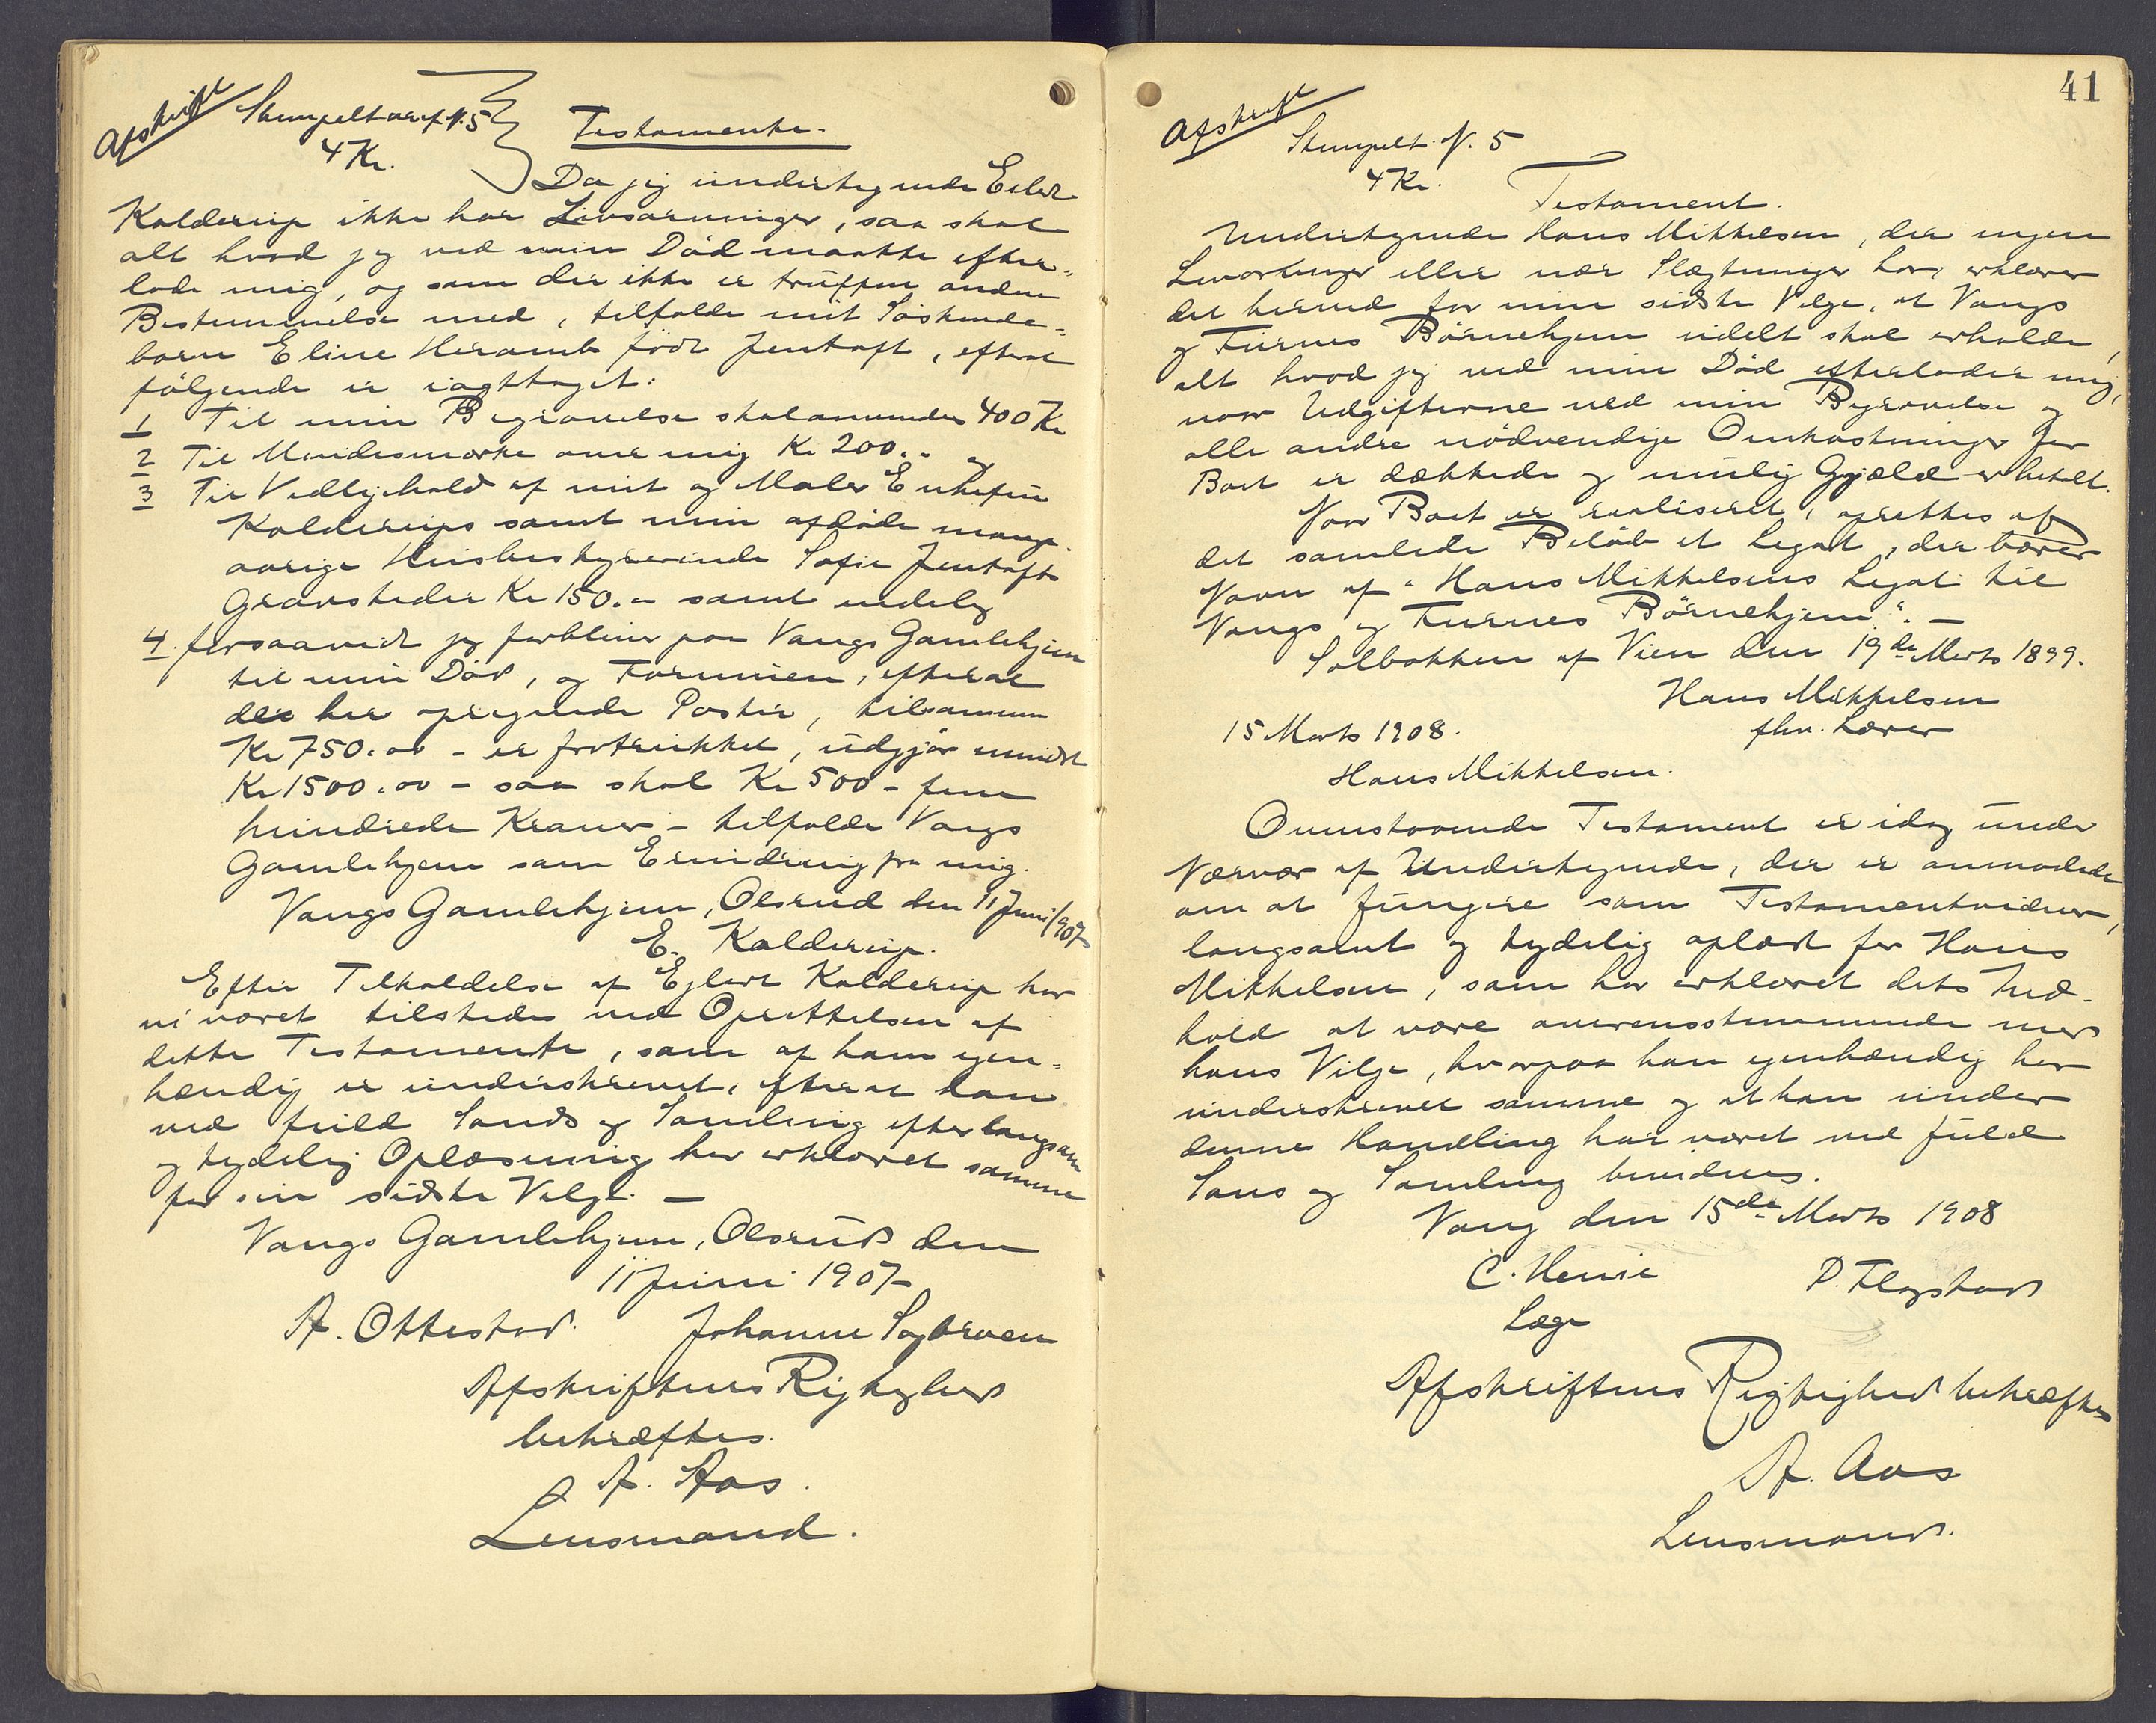 Afskrift
Stempelt ark N. 5
4 Kr.
Testamente.
Da jeg undertegnede Eilert
Kolderup ikke har Livsarvinger, saa skal
alt hvad jeg ved min Död maatte efter-
lade mig, og som der ikke er truffen anden
Bestemmelse med, tilfalde mit Söskende-
barn Eline Heramb födt Jentoft, efterat
fölgende er iagttaget:
1 Til min Begravelse skal anvendes 400 Kr
2 Til Mindesmærke over mig Kr 200.-
3 Til Vedligehold af mit og Maler Enkefru
Kolderups samt min afdöde mange-
aarige Husbestyrerinde Sofie Jentofts
Gravsteder Kr 150.- samt endelig
4. forsaavidt jeg forbliver paa Vangs Gamlehjem
til min Död, og Formuen, efterat
de her opregnede Poster, tilsammen
Kr 750.00 - er fratrukket, udgjör mindst
Kr 1500.00 - saa skal Kr 500 - fem
hundrede Kroner - tilfalde Vangs
Gamlehjem som Erindring fra mig.
Vangs Gamlehjem, Olsrud den 11 Juni 1907
E. Kolderup.
Efter Tilkaldelse af Eilert Kolderup har
vi været tilstede ved Oprettelsen af
dette Testamente, som af ham egen-
hændig er underskrevet, efterat han
ved fuld Sands og Samling efter langsam
og tydelig Oplæsning har erklæret samme
for sin sidste Vilge. -
Vangs Gamlehjem, Olsrud den
11 Juni 1907
A. Ottestad. Johanne Sagbraaen
Afskriftens Rigtighed
bekræftes.
A. Aas.
Lensmand.
41
Afskrift
Stempelt N. 5
4 Kr.
Testament.
Undertegnede Hans Mikkelsen, der ingen
Livsarvinger eller nær Slægtninger har, erklærer
det herved for min sidste Vilge, at Vangs
og Furnes Börnehjem udelt skal erholde,
alt hvad jeg ved min Död efterlader mig,
naar Udgifterne ved min Begravelse og
alle andre nödvendige Omkostninger for
Boet er dækkede og mulig Gjæld er betalt.
Naar Boet er realiseret, oprettes af
det samlede Belöb et Legat, der bærer
Navn af "Hans Mikkelsens Legat til
Vangs og Furnes Börnehjem". -
Solbakken af Vien den 19de Marts 1899.
Hans Mikkelsen
fhv. Lærer
15 Marts 1908.
Hans Mikkelsen.
Ovenstaaende Testament er idag under
Nærvær af Undertegnede, der er anmodede
om at fungere som Testamentvidner,
langsomt og tydelig oplæst for Hans
Mikkelsen, som har erklæret dets Ind-
hold at være overensstemmende med
hans Vilge, hvorpaa han egenhændig har
underskrevet samme og at han under
denne Handling har været ved fuld
Sans og Samling bevidnes.
Vang den 15de Marts 1908
C. Henie P. Flagstad
Læge
Afskriftens Rigtighed bekræftes
A. Aas
Lensmand.